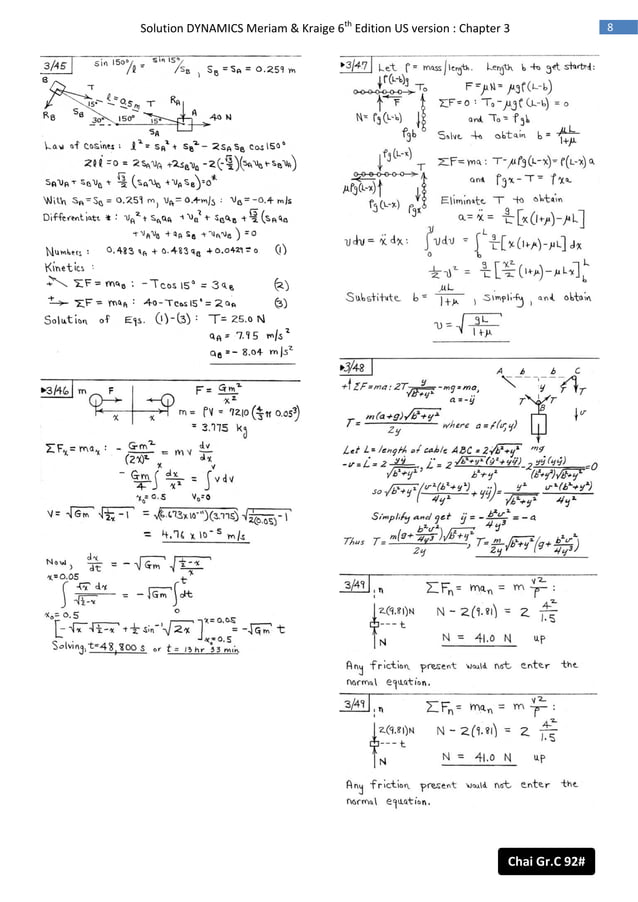 Solution DYNAMICS Meriam & Kraige 6th Edition US version : Chapter 3
8
3/45
sin 150°/ℓ = sin 15°/SB , SB = SA = 0.259 m
B
T
ℓ = 0.5 m
T
RA
A
15°
RB
SB
30°
150°
15°
40 N
SA
Law of Cosines : ℓ² = SA² + SB² - 2SA SB cos 150°
2ℓℓ̇ = 0 = 2SAVA + 2SBVB - 2(-√3/2)(SAVB + SBVA)
SAVA + SBVB + √3/2 (SAVB + VASB) = 0*
With SA = SB = 0.259 m, VA = 0.4 m/s : VB = -0.4 m/s
Differentiate * : VA² + SAaA + VB² + SBaB + √3/2 (SAaB
+ VAVB + aASB + VAVB) = 0
Numbers : 0.483 aA + 0.483 aB + 0.0427 = 0 (1)
Kinetics :
ΣF = maB : -T cos 15° = 3aB (2)
ΣF = maA : 40 - T cos 15° = 2aA (3)
Solution of Eqs. (1)-(3) : T = 25.0 N
aA = 7.95 m/s²
aB = - 8.04 m/s²
3/46
m F
x x
F = Gm²/x²
m = ρV = 7210 (4/3 π 0.05³)
= 3.775 kg
ΣFx = max : - Gm²/(2x)² = m v dv/dx
- Gm/4 ∫ dx/x² = ∫ v dv
x0 = 0.5 V0 = 0
V = √Gm √(1/2x - 1) = √(6.673x10⁻¹¹)(3.775) √(1/2(0.05) - 1)
= 4.76 x 10⁻⁵ m/s
Now, dx/dt = - √Gm √(½-x)/√x
x = 0.05
∫ √x dx/√(½-x) = - √Gm ∫ dt
x0 = 0.5 0
[-√x √(½-x) + ½ sin⁻¹√2x] x = 0.05 x0 = 0.5 = -√Gm t
Solving, t = 48,800 s or t = 13 hr 33 min
3/47
Let ρ = mass/length. Length b to get started:
ρ(L-b)g
T0
F = μN = μgρ(L-b)
F
ΣF = 0 : T0 - μgρ(L-b) = 0
N = ρg(L-b)
and T0 = ρgb
ρgb
Solve to obtain b = μL/1+μ
ρg(L-x)
T
ΣF = ma : T - μρg(L-x) = ρ(L-x) a
μρg(L-x)
and ρgx - T = ρxa
ρg(L-x)
ρgx
Eliminate T to obtain
a = ẍ = g/L [x(1+μ) - μL]
vdv = ẍ dx : ∫ vdv = ∫ g/L [x(1+μ) - μL] dx
½ v² = g/L [x²/2 (1+μ) - μLx]
Substitute b = μL/1+μ , simplify, and obtain
v = √(gL/1+μ)
3/48
A b b C
+↓ΣF = ma : 2T y/√b²+y² - mg = ma,
a = -ÿ
y
T T
T T
B
v
mg
T = m(a+g)√b²+y²/2y where a = f(v,y)
Let L = length of cable ABC = 2√b²+y²
-v = L̇ = 2 yẏ/√b²+y² , L̈ = 2 √b²+y² (ẏ²+yÿ)/(b²+y²) - 2 yẏ(yẏ)/(b²+y²)√b²+y² = 0
so √b²+y² (v²(b²+y²)/4y² + yÿ) = y²/√b²+y² v²(b²+y²)/4y²
Simplify and get ÿ = - b²v²/4y³ = -a
Thus T = m(g + b²v²/4y³)√b²+y²/2y , T = m/2y √b²+y² (g + b²v²/4y³)
3/49
n
ΣFn = man = m v²/ρ :
2(9.81)N
N - 2(9.81) = 2 4²/1.5
t
N
N = 41.0 N up
Any friction present would not enter the
normal equation.
3/49
n
ΣFn = man = m v²/ρ :
2(9.81)N
N - 2(9.81) = 2 4²/1.5
t
N
N = 41.0 N up
Any friction present would not enter the
normal equation.
Chai Gr.C 92#